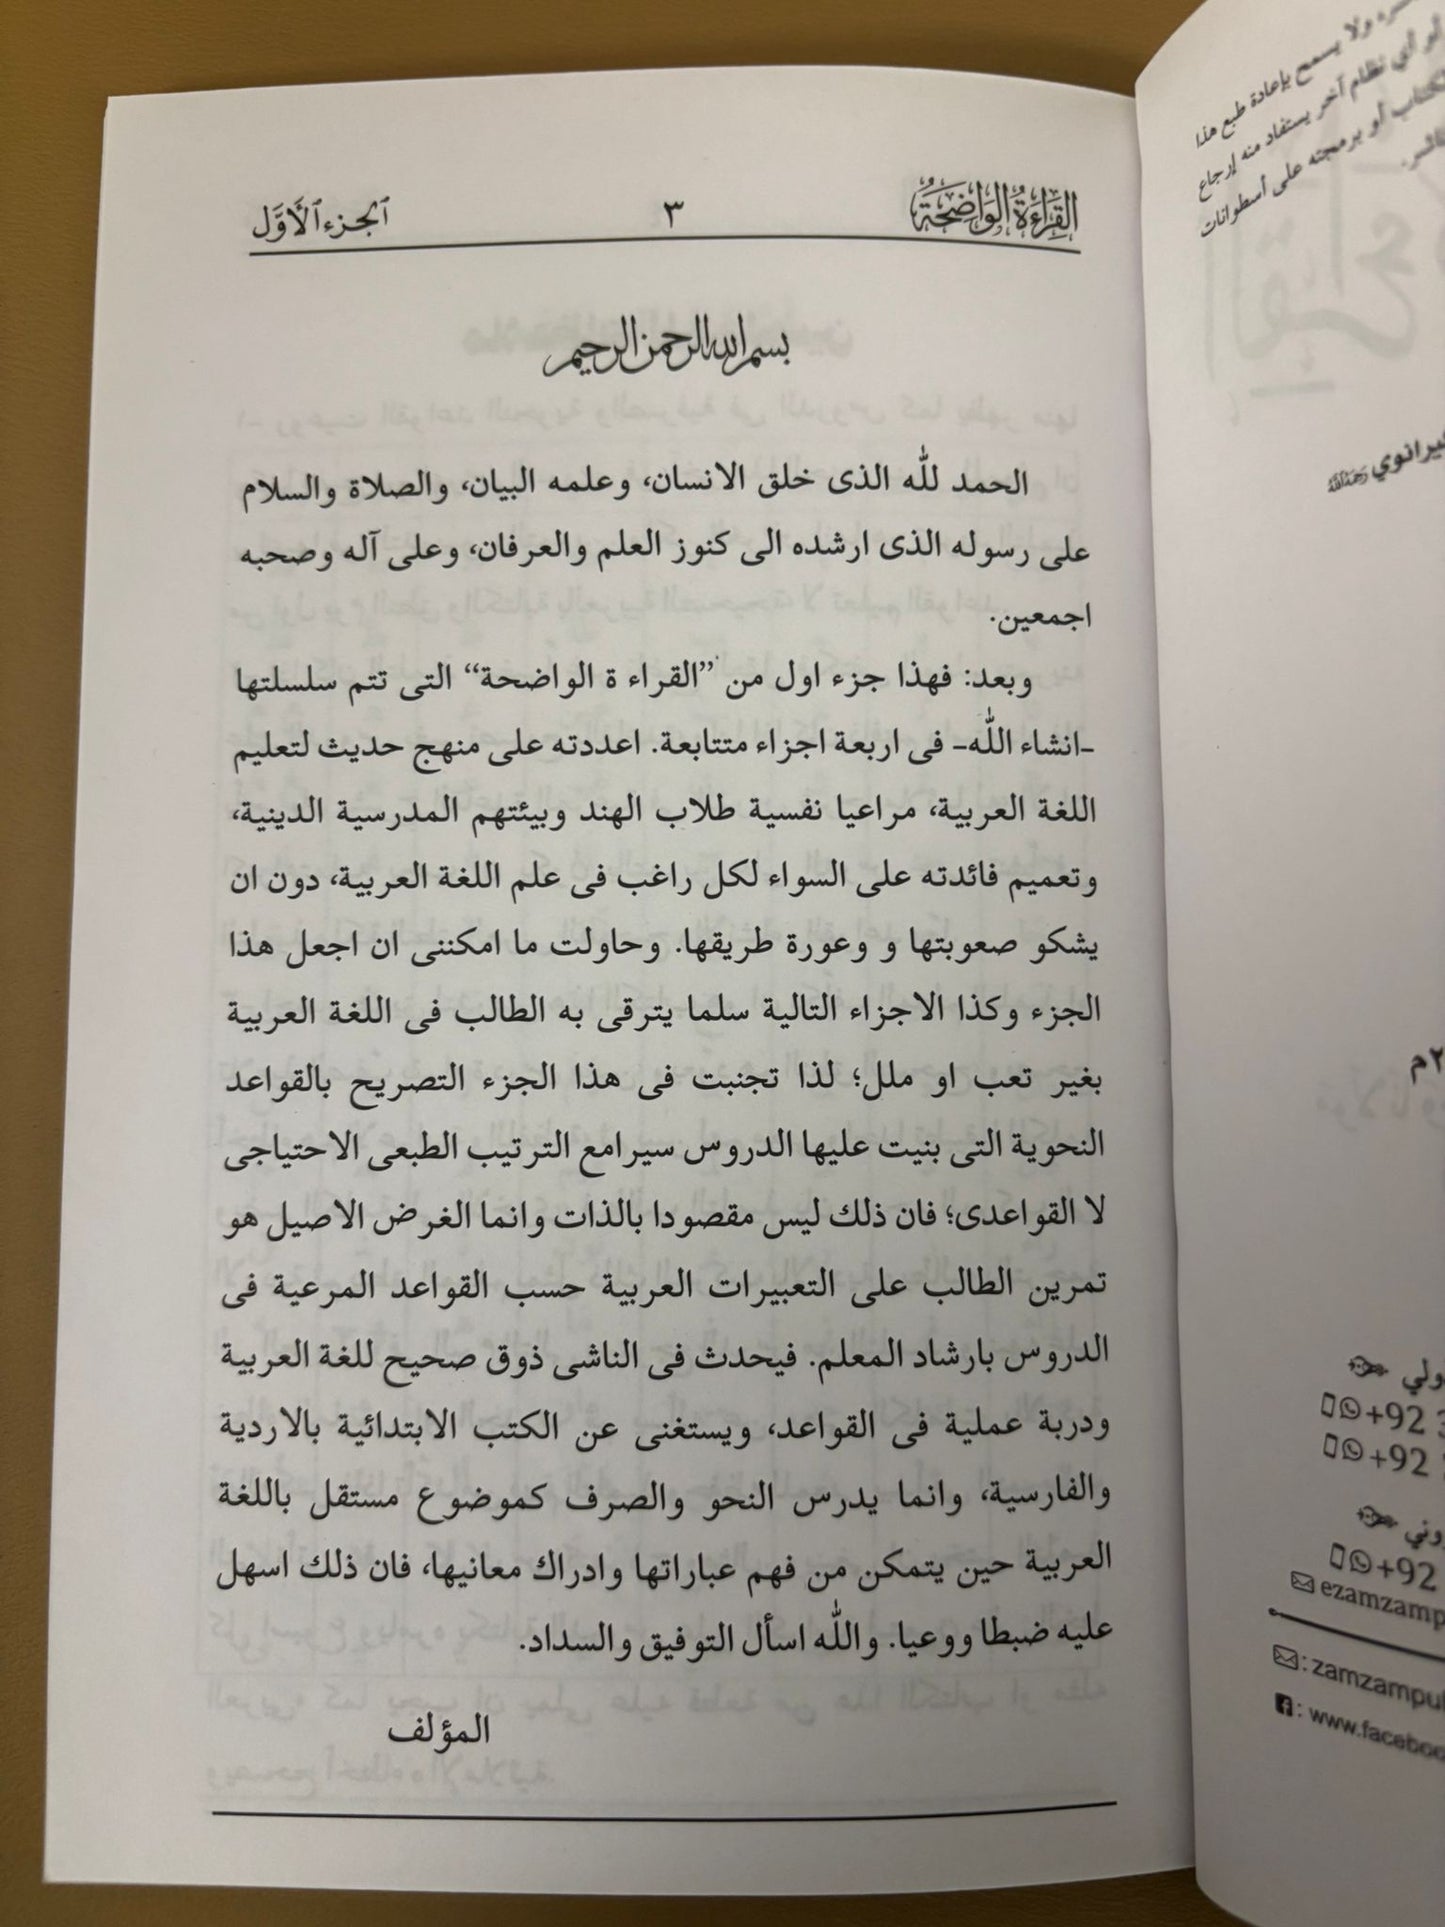 القِرَاءَةُ الوَاضِحَةُ ٣ ٱلجزء ٱلأَوَّل
بسم الله الرحمن الرحيم
الحمد للّٰه الذى خلق الانسان، وعلمه البيان، والصلاة والسلام
على رسوله الذى ارشده الى كنوز العلم والعرفان، وعلى آله وصحبه
اجمعين.
وبعد: فهذا جزء اول من ”القراء ة الواضحة“ التى تتم سلسلتها
-انشاء اللّٰه- فى اربعة اجزاء متتابعة. اعددته على منهج حديث لتعليم
اللغة العربية، مراعيا نفسية طلاب الهند وبيئتهم المدرسية الدينية،
وتعميم فائدته على السواء لكل راغب فى علم اللغة العربية، دون ان
يشكو صعوبتها و وعورة طريقها. وحاولت ما امكننى ان اجعل هذا
الجزء وكذا الاجزاء التالية سلما يترقى به الطالب فى اللغة العربية
بغير تعب او ملل؛ لذا تجنبت فى هذا الجزء التصريح بالقواعد
النحوية التى بنيت عليها الدروس سيرامع الترتيب الطبعى الاحتياجى
لا القواعدى؛ فان ذلك ليس مقصودا بالذات وانما الغرض الاصيل هو
تمرين الطالب على التعبيرات العربية حسب القواعد المرعية فى
الدروس بارشاد المعلم. فيحدث فى الناشى ذوق صحيح للغة العربية
ودربة عملية فى القواعد، ويستغنى عن الكتب الابتدائية بالاردية
والفارسية، وانما يدرس النحو والصرف كموضوع مستقل باللغة
العربية حين يتمكن من فهم عباراتها وادراك معانيها، فان ذلك اسهل
عليه ضبطا ووعيا. واللّٰه اسأل التوفيق والسداد.
المؤلف
ولا يسمح بإعادة طبع هذا
أو أي نظام آخر يستفاد منه إرجاع
أو برمجته على أسطوانات
+92
+92
+92